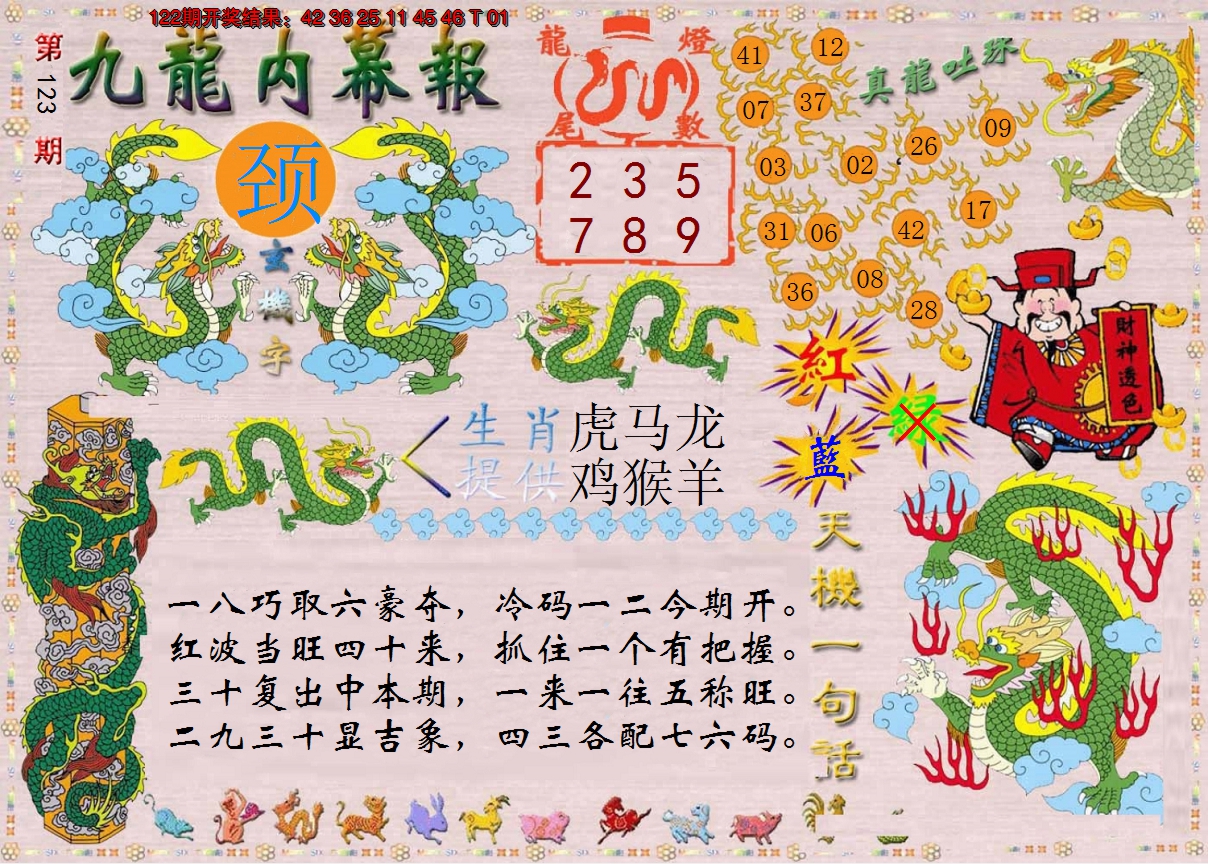 122期开奖结果：42 36 25 11 45 46 T 01
第123期
九龍内幕報
颈
玄機字
龍燈尾數
2 3 5
7 8 9
真龍吐珠
41 12
07 37
26 09
03 02
17
31 06 42
36 08
28
紅
绿
藍
財神透色
生肖提供
虎马龙
鸡猴羊
天機一句话
一八巧取六豪夺，冷码一二今期开。
红波当旺四十来，抓住一个有把握。
三十复出中本期，一来一往五称旺。
二九三十显吉象，四三各配七六码。